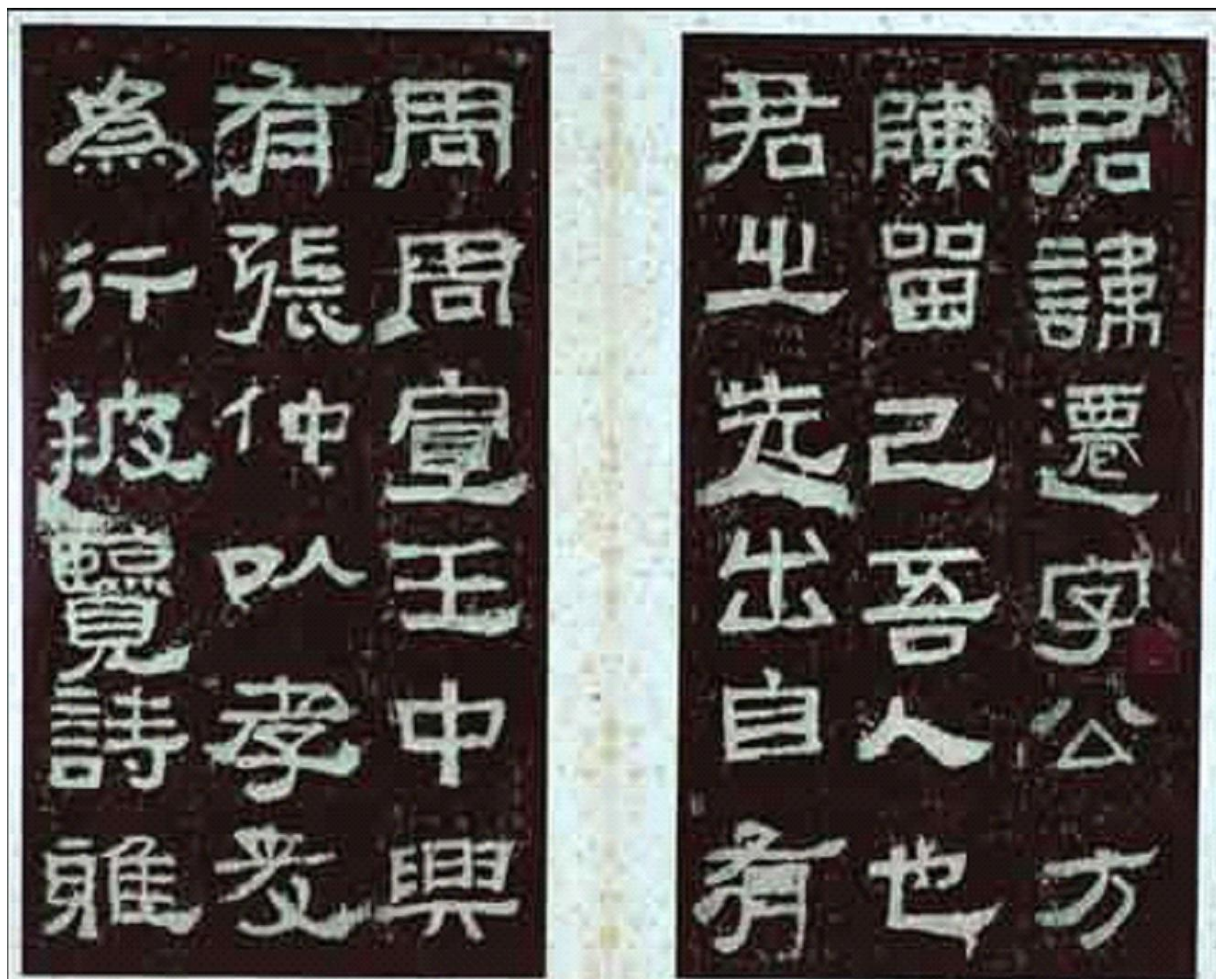 君諱遷字公方
陳留己吾人也
君之先出自有
周周宣王中興
有張仲以孝友
為行披覽詩雅